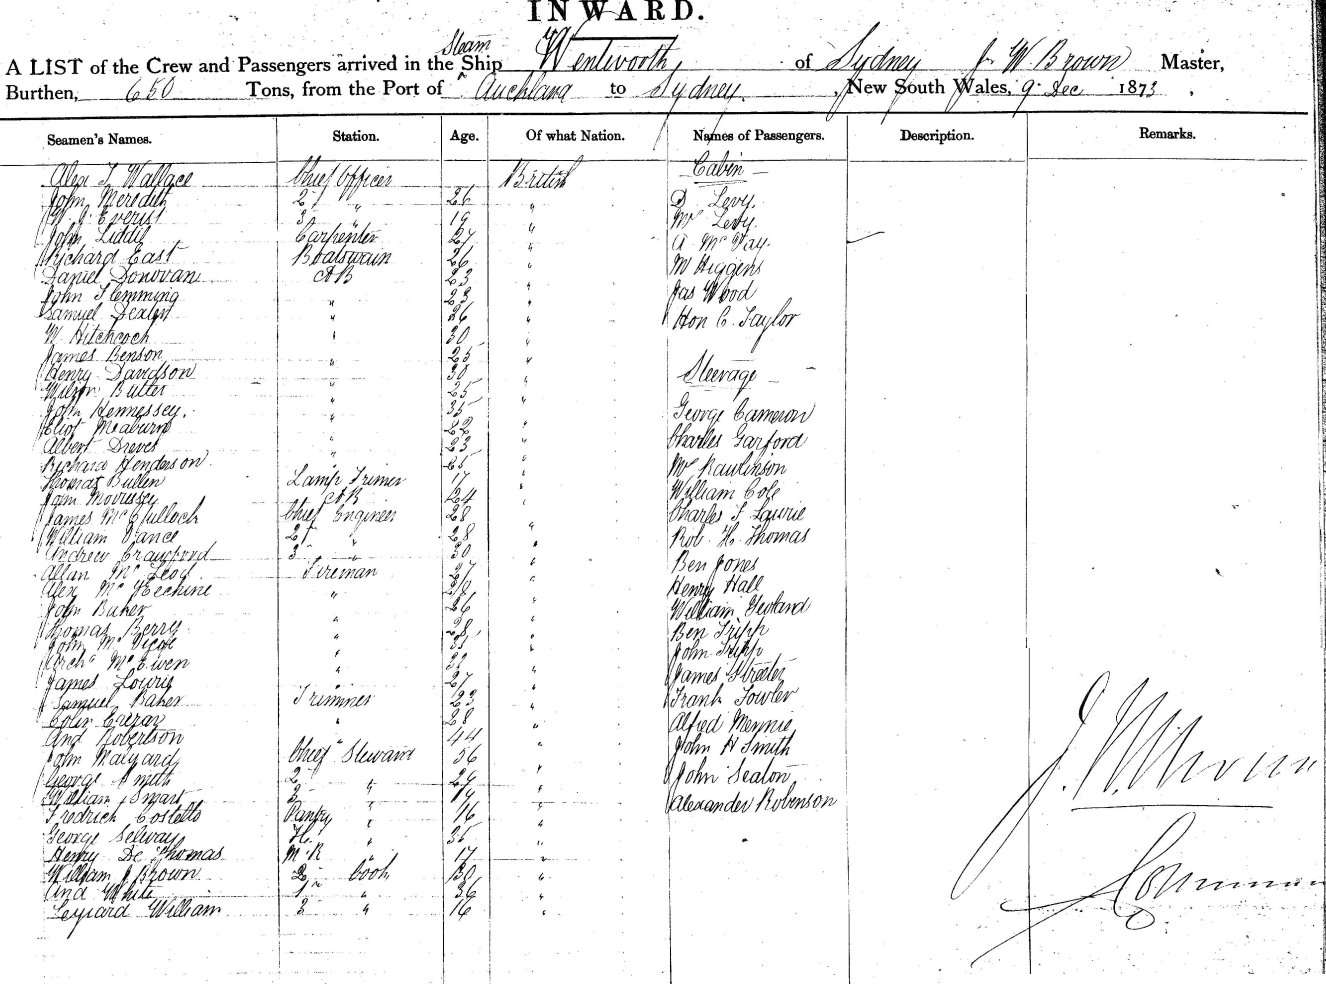 INWARD.
A LIST of the Crew and Passengers arrived in the Steam Ship Wentworth of Sydney J. W. Brown Master,
Burthen, 650 Tons, from the Port of Auckland to Sydney, New South Wales, 9 Dec 1873.
Seamen's Names. Station. Age. Of what Nation. Names of Passengers. Description. Remarks.
Alex T Wallace Chief Officer British Cabin
John Meredith 2 " 26 " D. Levy.
W. J. Everist 3 " 19 " Mr Levy.
John Liddle Carpenter 27 " A Mc Vay
Richard East Boatswain 26 " Mr Higgens
Daniel Donovan AB 23 "
John Flemming " 23 " Jas Wood
Samuel " 26 " Hon C. Taylor
W. Hitchcock " 30 "
James Benson " 25 "
Henry Davidson " 30 " Steerage
Wilson Butler " 25 "
John Hennessey. " 35 " George Cameron
Eliot Meaburn " 22 "
Albert Dreves " 23 " Charles Garford
Richard Henderson " 25 " Mr Rawlinson
Thomas Bullen Lamp Trimer 17 "
John Morrissey AB 24 " William Cole
James McCulloch Chief Engineer 28 Charles F Lawrie
William Vance 2 " 28 " Rob. H. Thomas
Andrew Crawford 3 " 30 "
Allan McLeod Fireman 27 " Ben Jones
Alex McKechine " 28 " Henry Hall
John Baker " 26 " William
Thomas Berry " 28 " Ben Tripp
John Mc " 35 " John Tripp
Archd McEwen " 32 "
James Lowrie " 27 " James Streeter
Samuel Baker Trimmer 23 " Frank Fowler
Colin " 28 " Alfred Mennie
And Robertson " 44 " John H Smith
John Malyard Chief Steward 56 "
George Smith 2 " 29 " John Seaton
William Smart 3 " 19 " Alexander Robinson
Fredrick Costello Pantry " 16 "
George Selway " 35 "
Henry De Thomas M.R " 17 "
William J Brown 2 Cook 30 "
And White 1 " 36 "
William 3 " 16 "
J. W. Brown